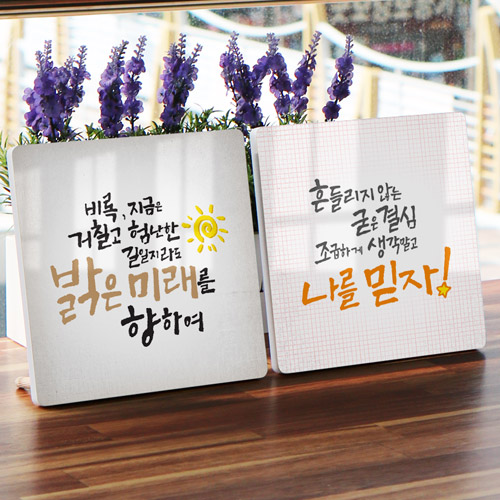 비록, 지금은
거칠고 험난한
길일지라도
밝은 미래를
향하여
흔들리지 않는
굳은 결심
조급하게 생각말고
나를 믿자!